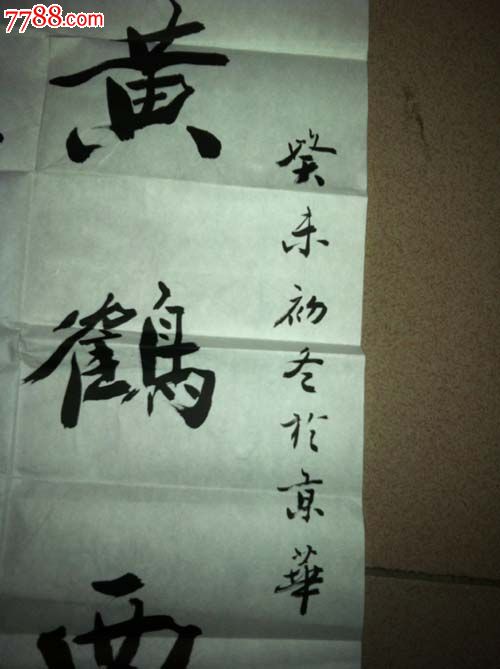 7788.com
癸未初冬於京華
黄鶴西